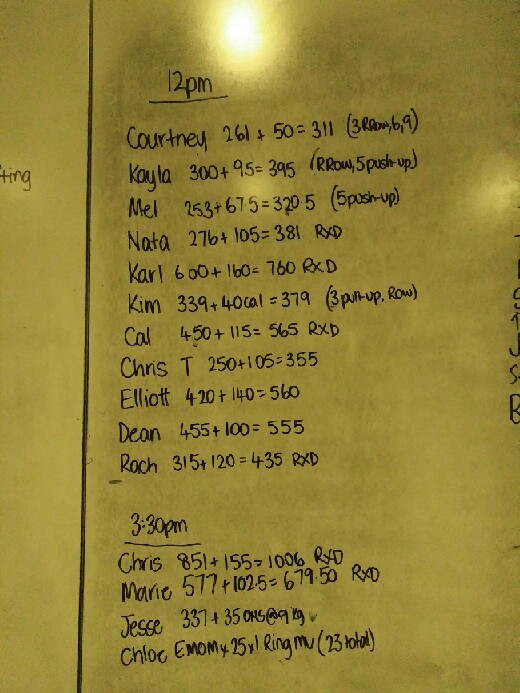 12pm
Courtney 261 + 50 = 311 (3RRow, 6, 9)
Kayla 300 + 95 = 395 (RRow, 5 push-up)
Mel 253 + 67.5 = 320.5 (5 push-up)
Nata 276 + 105 = 381 RXD
Karl 600 + 160 = 760 RXD
Kim 339 + 40cal = 379 (3 pull-up, Row)
Cal 450 + 115 = 565 RXD
Chris T 250 + 105 = 355
Elliott 420 + 140 = 560
Dean 455 + 100 = 555
Rach 315 + 120 = 435 RXD
3:30pm
Chris 851 + 155 = 1006 RXD
Marie 577 + 102.5 = 679.50 RXD
Jesse 337 + 35 OHS@9kg
Chloe EMOM x 25 x 1 Ring mu (23 total)